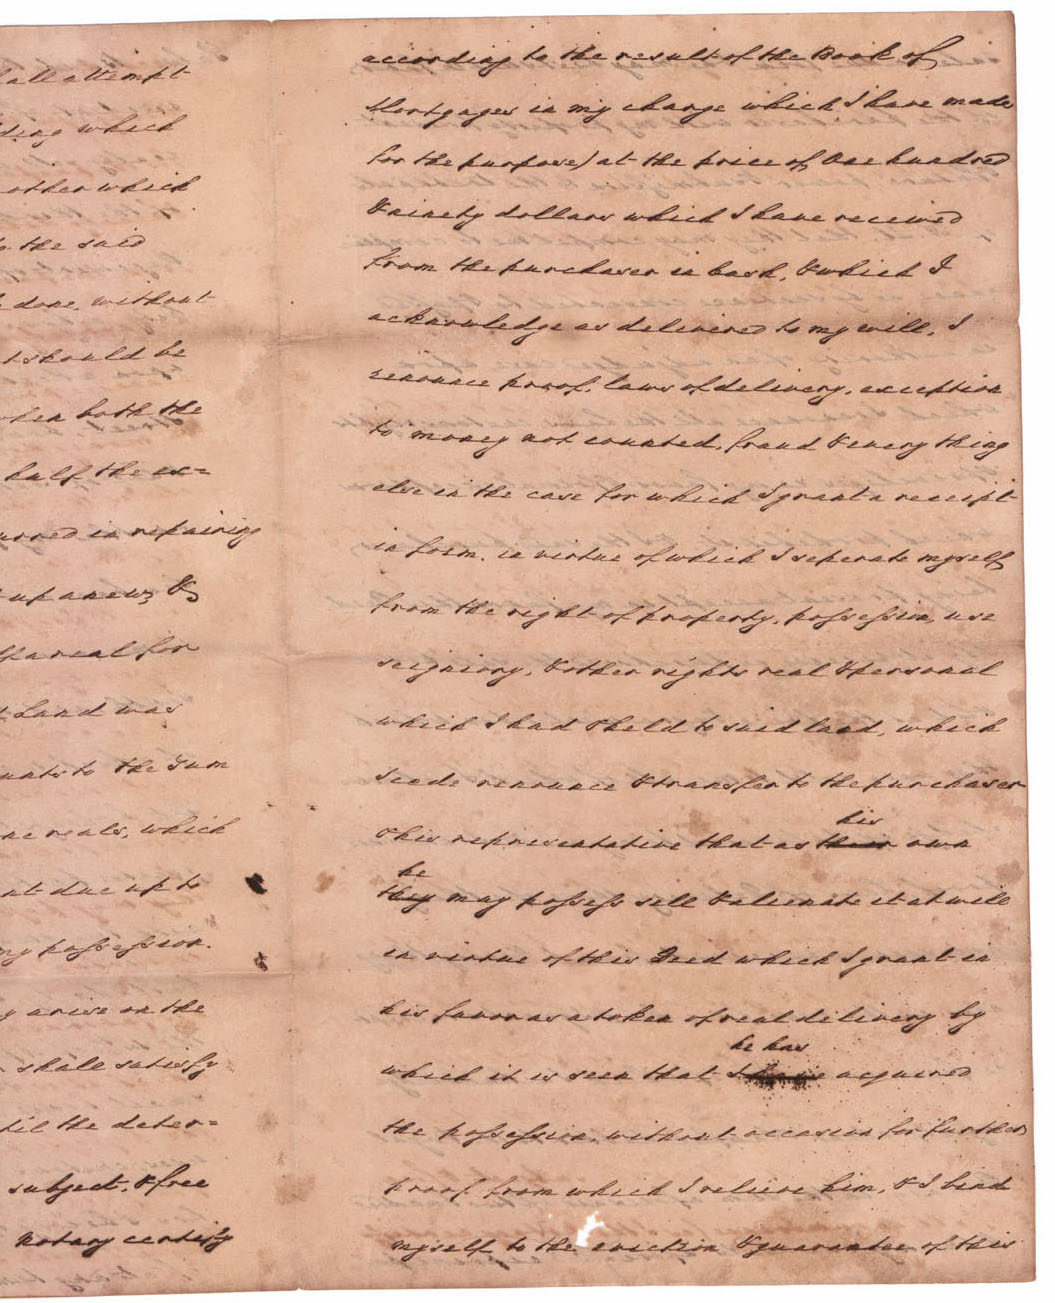 all attempt
ding which
other which
to the said
done, without
t should be
when both the
half the ex=
urred in repairing
up anew, &
lf a real for
t Land was
unts to the sum
ne reals, which
nt due up to
my possession.
y arise on the
shall satisfy
til the deter=
subject, & free
Notary certify
according to the result of the Book of
Mortgages in my charge which I have made
for the purpose) at the price of, One hundred
& ninety dollars which I have received
from the purchaser in cash, & which I
acknowledge as delivered to my will, I
renounce proof, laws of delivery, exception
to money not counted, fraud & every thing
else in the case for which I grant a receipt
in form. in virtue of which I seperate myself
from the right of property, possession, use
seigniory, & other rights real & personal
which I had & held to said land, which
I cede renounce & transfer to the purchaser
his
& his representative that as their own
he
they may possess sell & alienate it at will
in virtue of this Deed which I grant in
his favor as a token of real delivery by
he has
which it is seen that I have acquired
the possession, without occasion for further
proof from which I relieve him, & I bind
myself to the eviction & guarantee of this